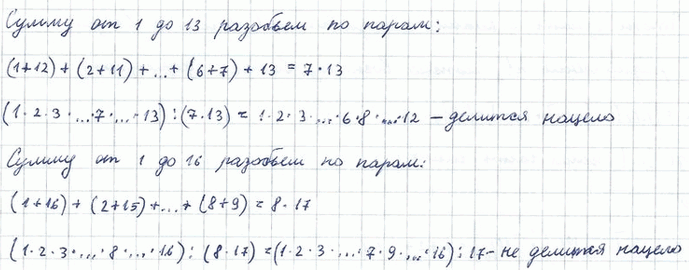 Сумму от 1 до 13 разобьем по парам:
(1+12) + (2+11) + ... + (6+7) + 13 = 7·13
(1·2·3·...·7·...·13):(7·13) = 1·2·3·...·6·8·...·12 – делится нацело
Сумму от 1 до 16 разобьем по парам:
(1+16) + (2+15) + ... + (8+9) = 8·17
(1·2·3·...·8·...·16):(8·17) = (1·2·3·...·7·9·...·16):17 – не делится нацело